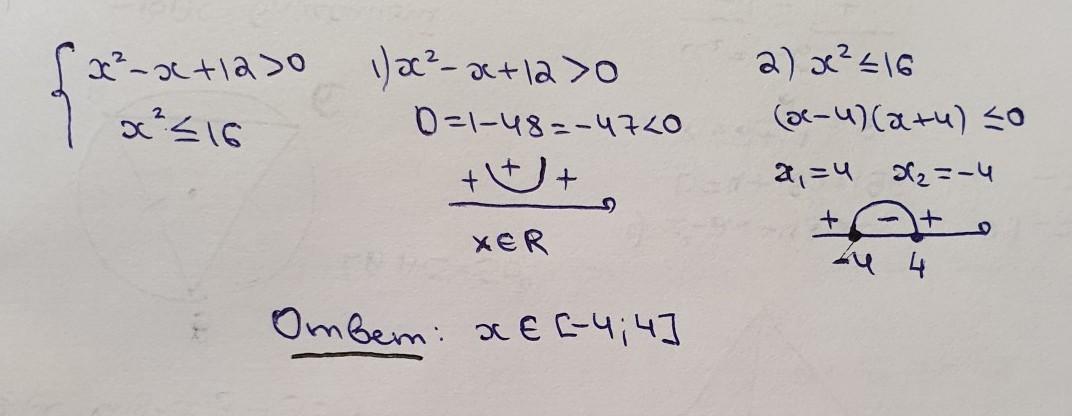 { x² - x + 12 > 0
x² ≤ 16
1) x² - x + 12 > 0
D = 1 - 48 = -47 < 0
+ + +
x ∈ R
2) x² ≤ 16
(x - 4)(x + 4) ≤ 0
x₁ = 4 x₂ = -4
+ - +
-4 4
Ответ: x ∈ [-4; 4]